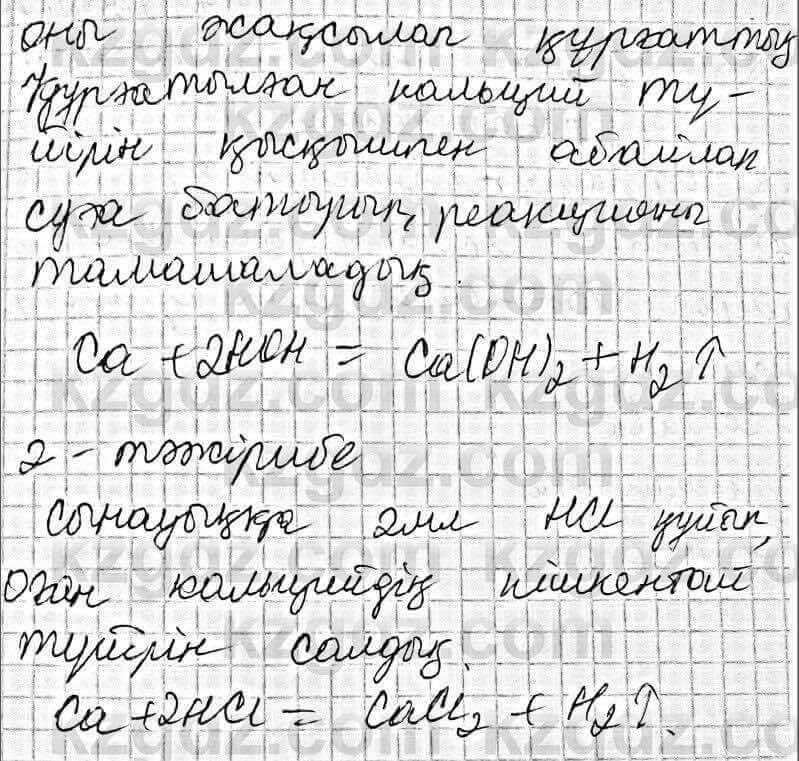 оны жақсылап құрғаттық
Құрғатылған кальций тү-
йірін қысқышпен абайлап
суға батырып, реакцияны
тамашаладық.
Ca + 2HOH = Ca(OH)₂ + H₂↑
2 - тәжірибе
Сынауыққа 2мл HCl құйып,
оған кальцийдің кішкентай
түйірін салдық.
Ca + 2HCl = CaCl₂ + H₂↑.
kzgdz.com